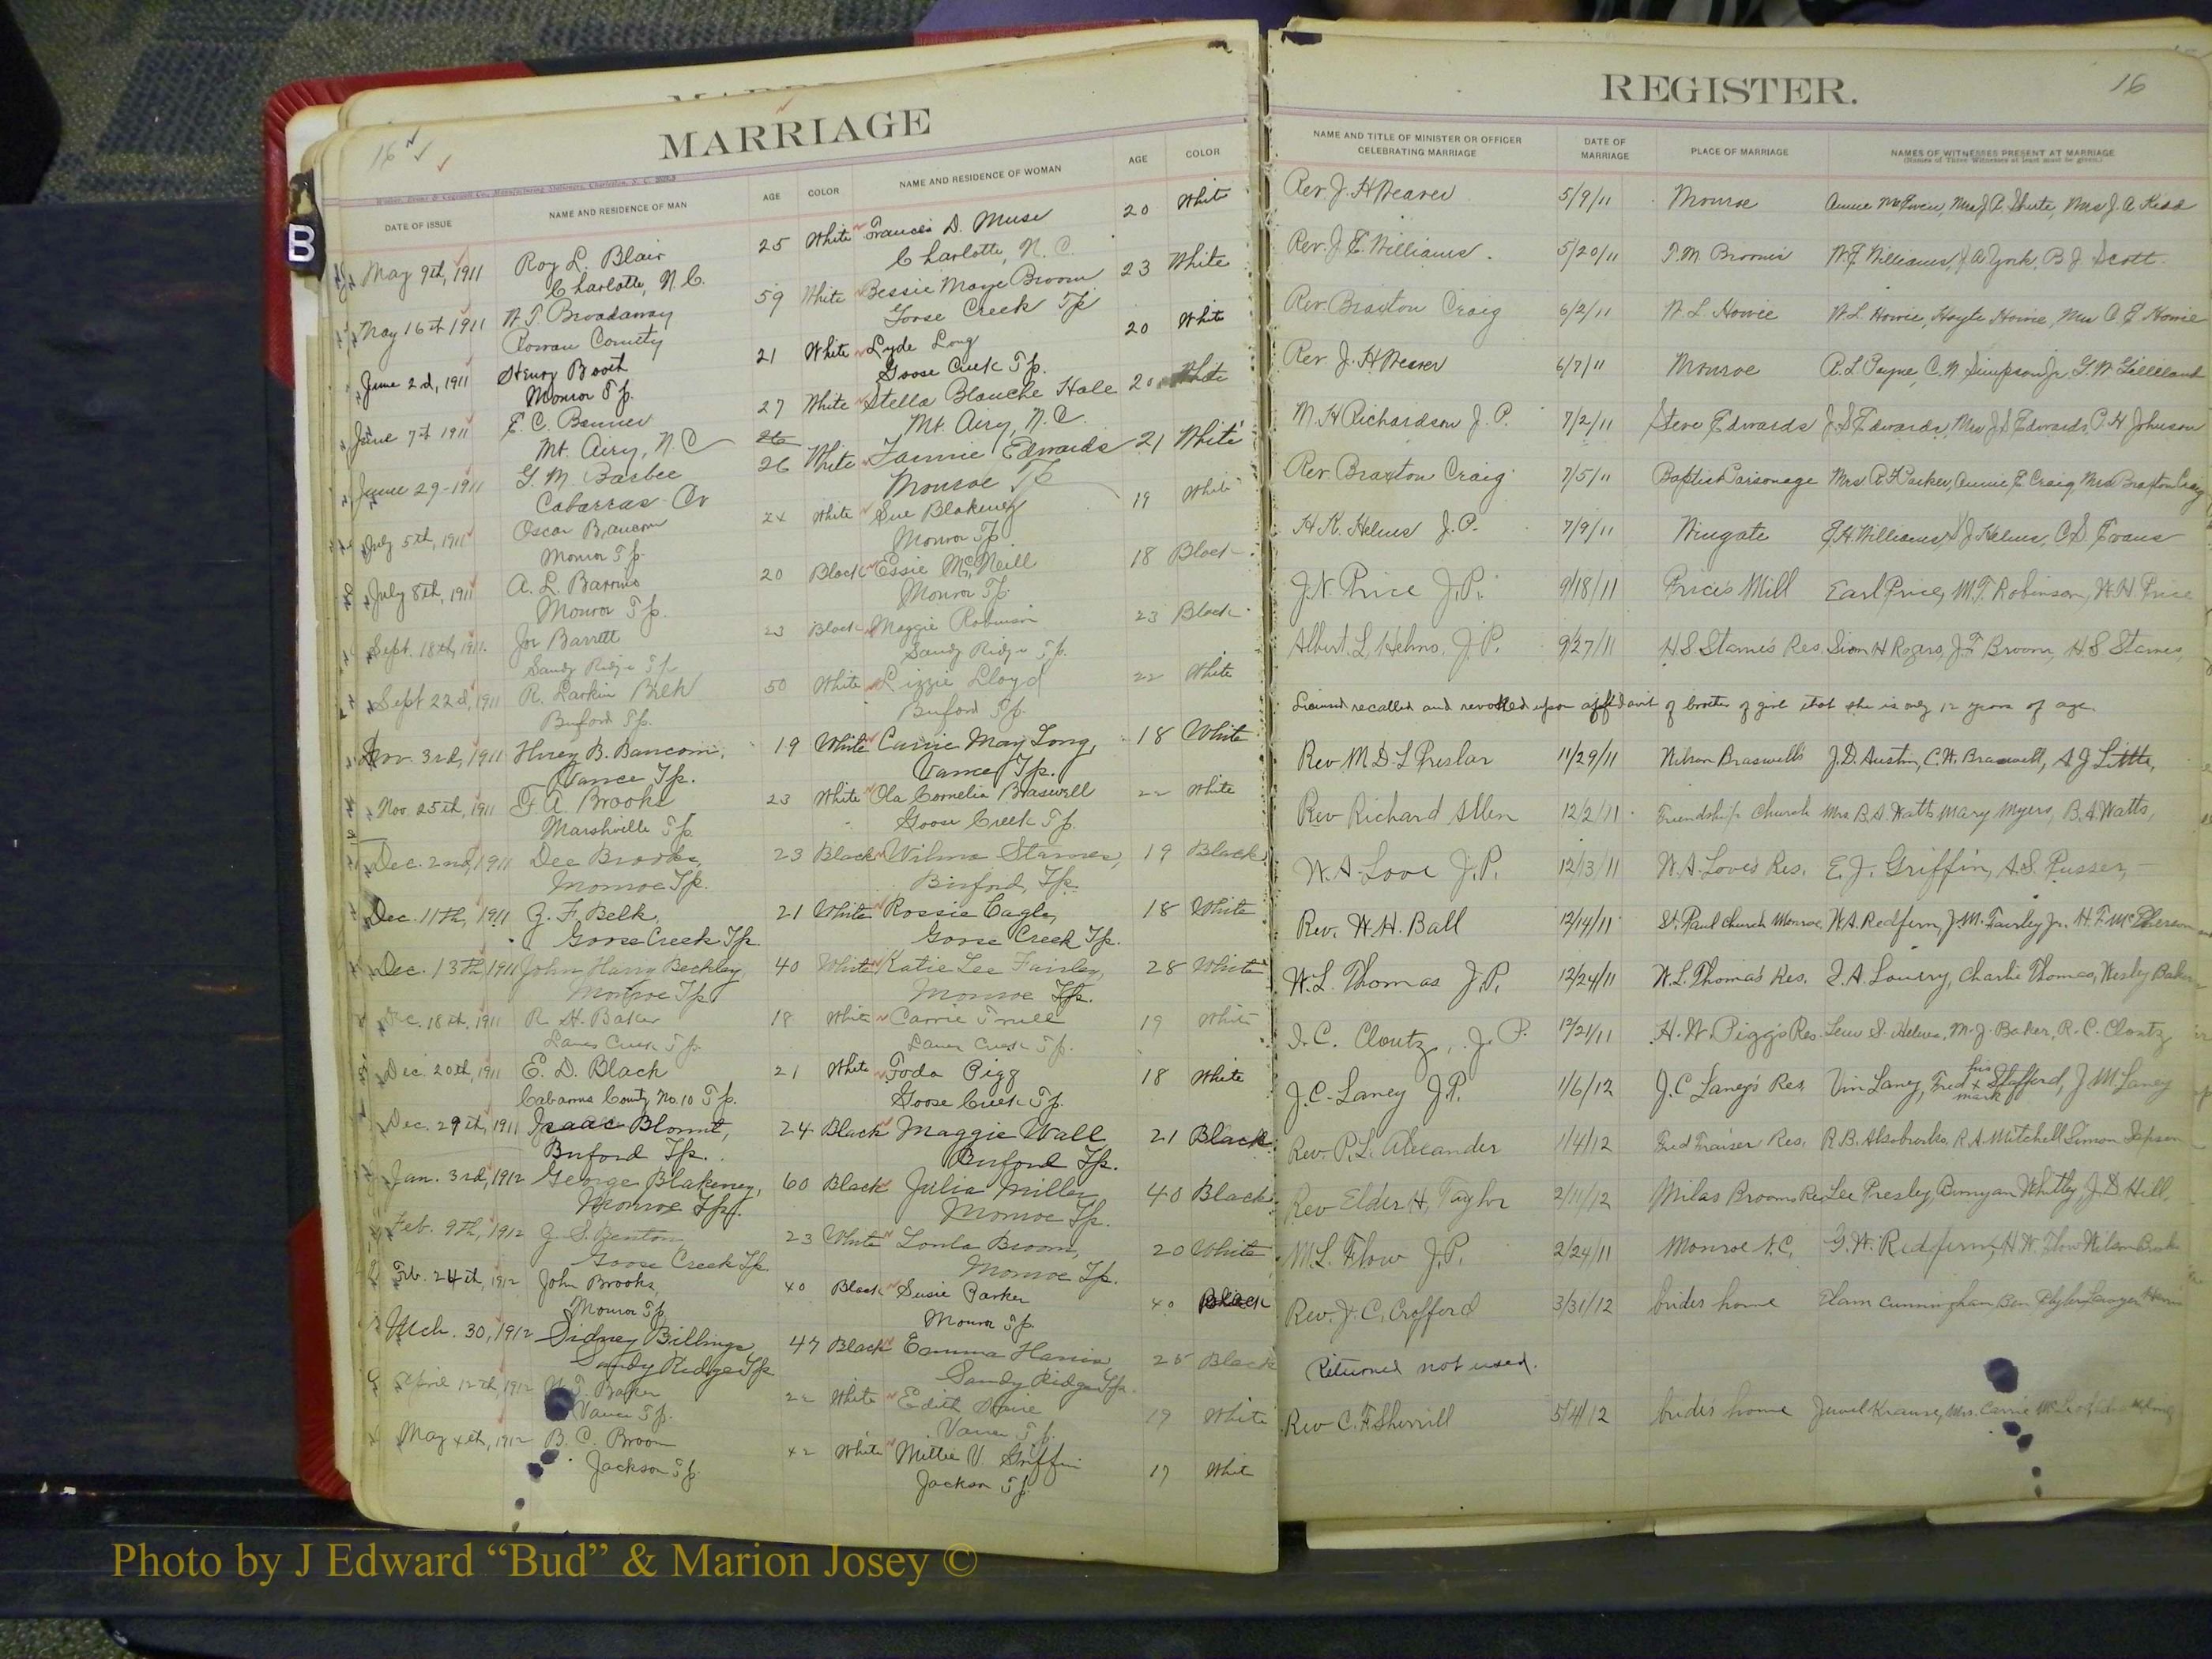 16
MARRIAGE
DATE OF ISSUE NAME AND RESIDENCE OF MAN AGE COLOR NAME AND RESIDENCE OF WOMAN AGE COLOR
May 9th, 1911 Roy L. Blair 25 White Frances D. Muse 20 White
Charlotte, N.C. Charlotte, N.C.
May 16th 1911 W. T. Broadaway 59 White Bessie Maye Broom 23 White
Rowan County Goose Creek Tp
June 2d, 1911 Henry Booth 21 White Lyde Long 20 White
Monroe Tp. Goose Creek Tp.
June 7th 1911 E. C. Banner 27 White Stella Blanche Hale 20 White
Mt. Airy, N.C. Mt. Airy, N.C.
June 29-1911 G. M. Barbee 26 White Fannie Edwards 21 White
Cabarras Co Monroe Tp
July 5th, 1911 Oscar Baucom White Sue Blakeney 19 White
Monroe Tp. Monroe Tp
July 8th, 1911 A. L. Barrino 20 Black Essie McNeill 18 Black
Monroe Tp. Monroe Tp.
Sept. 18th, 1911. Joe Barrett 23 Black Maggie Robinson 23 Black
Sandy Ridge Tp Sandy Ridge Tp.
Sept 22d, 1911 R. Larkin Belk 50 White Lizzie Lloyd 22 White
Buford Tp. Buford Tp.
Nov. 3rd, 1911 B. Baucom, 19 White Carrie May Long, 18 White
Vance Tp. Vance Tp.
Nov. 25th, 1911 A. Brooks 23 White Ola Cornelia Braswell 22 White
Marshville Tp Goose Creek Tp.
Dec. 2nd, 1911 Dee Brooks, 23 Black Wilma Starnes, 19 Black
Monroe Tp. Buford, Tp.
Dec. 11th, 1911 F. Belk, 21 White Rossie Cagle, 18 White
Goose Creek Tp. Goose Creek Tp.
Dec. 13th, 1911 John Harry Bechley, 40 White Katie Lee Fairley, 28 White
Monroe Tp Monroe Tp.
Dec. 18th, 1911 R. H. Baker 18 White Carrie Trull 19 White
Lanes Creek Tp. Lanes Creek Tp.
Dec. 20th, 1911 E. D. Black 21 White Foda Pigg 18 White
Cabarrus County No. 10 Tp. Goose Creek Tp.
Dec. 29th, 1911 Isaac Blount, 24 Black Maggie Wall 21 Black
Buford Tp. Buford Tp.
Jan. 3rd, 1912 George Blakeney, 60 Black Julia Miller 40 Black
Monroe Tp. Monroe Tp.
Feb. 9th, 1912 S. Benton, 23 White Loula Broom, 20 White
Goose Creek Tp. Monroe Tp.
Feb. 24th, 1912 John Brooks, 40 Black Susie Parker 40 Black
Monroe Tp. Monroe Tp.
Mch. 30, 1912 Sidney Billings 47 Black Eamma Harris, 25 Black
Sandy Ridge Tp Sandy Ridge Tp.
April 12th, 1912 Baker 22 White Edith 19 White
Vance Tp. Vance Tp.
May 4th, 1912 B. C. Broom 42 White Mittie V. Griffin 19 White
Jackson Tp. Jackson Tp.
REGISTER. 16
NAME AND TITLE OF MINISTER OR OFFICER CELEBRATING MARRIAGE DATE OF MARRIAGE PLACE OF MARRIAGE NAMES OF WITNESSES PRESENT AT MARRIAGE
(Names of Three Witnesses at least must be given.)
Rev. J. H Weaver 5/9/11 Monroe Mrs J. A Kidd
Rev. J. E. Williams. 5/20/11 T. M Broom's W. J. Williams, J A York, B. J. Scott.
Rev. Braxton Craig 6/2/11 W. L Howie W. L. Howie, Hoyle Howie, Mrs Howie
Rev. J. H Weaver 6/7/11 Monroe R. L Payne, C. N. Simpson Jr. G. W Gilleland
M. H Richardson J. P. 7/2/11 Steve Edwards J. S Edwards, Mrs J. S Edwards, P. H Johnson
Rev Braxton Craig 7/5/11 Baptist Parsonage Mrs R. F Parker, Annie E Craig, Mrs Braxton Craig
H. K. Helms J. P. 7/9/11 Wingate J. H. Williams, J Helms, C. S. Evans
J. N. Price J. P. 9/18/11 Price's Mill Earl Price, M. T. Robinson, W. H. Price
Albert L Helms, J. P. 9/27/11 H S Starnes Res. Sion H Rogers, J. F Broom, H. S. Starnes,
License recalled and revoked upon affidavit of brother of girl that she is only 12 years of age.
Rev M D. L Preslar 11/29/11 Nelson Braswells J. D. Austin, C. W. Braswell, A J Little,
Rev Richard Allen 12/2/11 Friendship Church Mrs B. A. Watts Mary Myers, B. A. Watts,
W. A. Love J. P. 12/13/11 W. A. Love's Res. E. J. Griffin, A. S. Pusser,
Rev. W. H. Ball 12/14/11 St. Paul Church Monroe W. A. Redfern, J. M. Fairley Jr., H. F. McPherson
W. L. Thomas J. P. 12/24/11 W. L. Thomas's Res. A. Lowery, Charlie Thomas, Wesley Baker
C. Clontz, J. P. 12/21/11 H. W. Piggs Res. S. Helms, M. J. Baker, R. C. Clontz
J. C. Laney J. P. 1/6/12 J. C Laney's Res. Vin Laney, Fred his x mark Stafford, J M Laney
Rev. P. L. Alexander 1/4/12 Fred Res. R. B. Alsobrooks, R. A. Mitchell Simon
Rev Elder H. Taylor 2/11/12 Milas Brooms Res Lee Presley, Bunyan Whitley, J. D. Hill,
M. L. Flow J. P. 2/24/11 Monroe N. C. G. W. Redfern, H W. Flow Wilson
Rev. J. C. Crofford 3/31/12 brides home Elam Cunningham Ben Plyler
Returned not used.
Rev C. F. Sherrill 5/4/12 bride's home Jewel Krause, Mrs. Carrie
B
Photo by J Edward “Bud” & Marion Josey ©